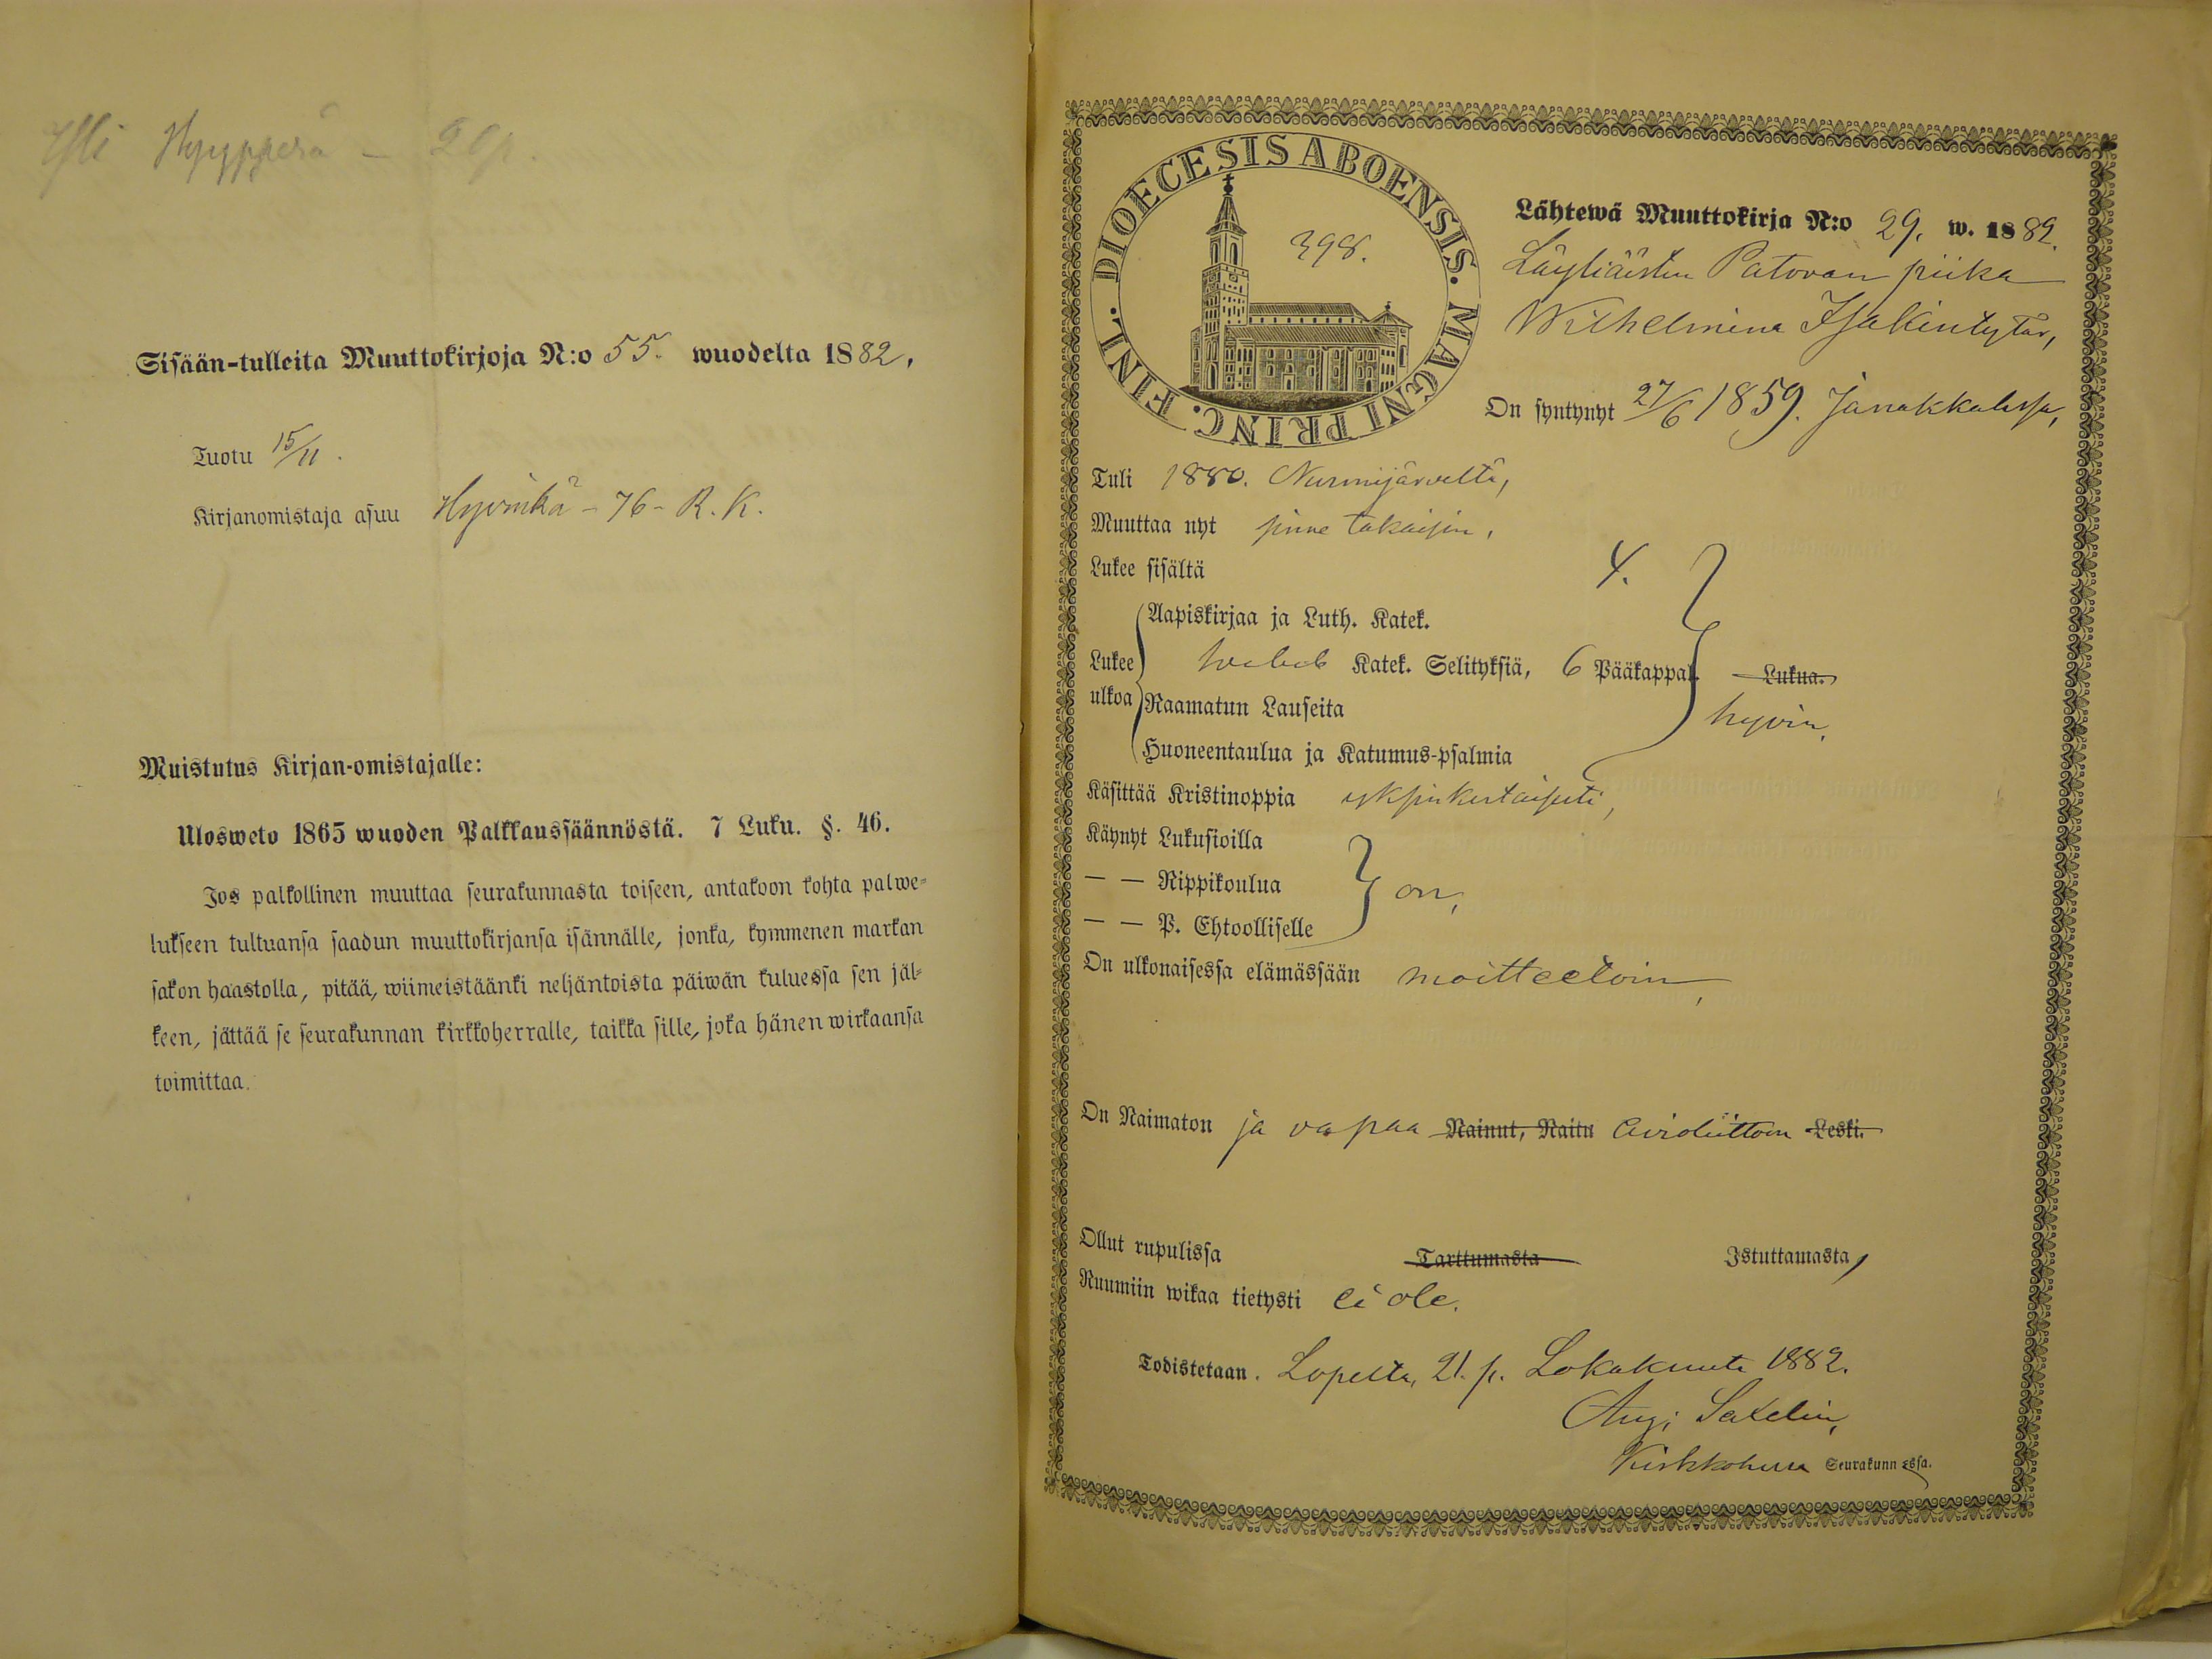 Hyyppärä –
Sisään-tulleita Muuttokirjoja N:o 55. wuodelta 1882.
Tuotu 15/11.
Kirjanomistaja asuu Hyvinkä – 76 – R. K.
Muistutus Kirjan-omistajalle:
Ulosweto 1865 wuoden Palkkaussäännöstä. 7 Luku. §. 46.
Jos palkollinen muuttaa seurakunnasta toiseen, antakoon kohta palwe-
lukseen tultuansa saadun muuttokirjansa isännälle, jonka, kymmenen markan
sakon haastolla, pitää, wiimeistäänki neljäntoista päiwän kuluessa sen jäl-
keen, jättää se seurakunnan kirkkoherralle, taikka sille, joka hänen wirkaansa
toimittaa.
DIOECESIS ABOENSIS. MAGNI PRINC. FINL.
398.
Lähtewä Muuttokirja N:o 29. w. 1882.
Läyliäisten Patovan piika
Wilhelmina Isakintytär,
On syntynyt 27/6 1859. Janakkalassa,
Tuli 1880. Nurmijärveltä,
Muuttaa nyt sinne takaisin,
Lukee sisältä 4.
Aapiskirjaa ja Luth. Katek.
Lukee Katek. Selityksiä, 6 Pääkappal. Lukua.
ulkoa Raamatun Lauseita hyvin,
Huoneentaulua ja Katumus-psalmia
Käsittää Kristinoppia yksinkertaisesti,
Käynyt Lukusioilla
— — Rippikoulua on,
— — P. Ehtoolliselle
On ulkonaisessa elämässään moitteetoin,
On Naimaton ja vapaa Nainut, Naitu avioliittoon Leski.
Ollut rupulissa Tarttumasta Istuttamasta,
Ruumiin wikaa tietysti ei ole.
Todistetaan. Lopelta, 21. p. Lokakuuta 1882.
Aug. Saxelin,
Kirkkoherra Seurakunnassa.